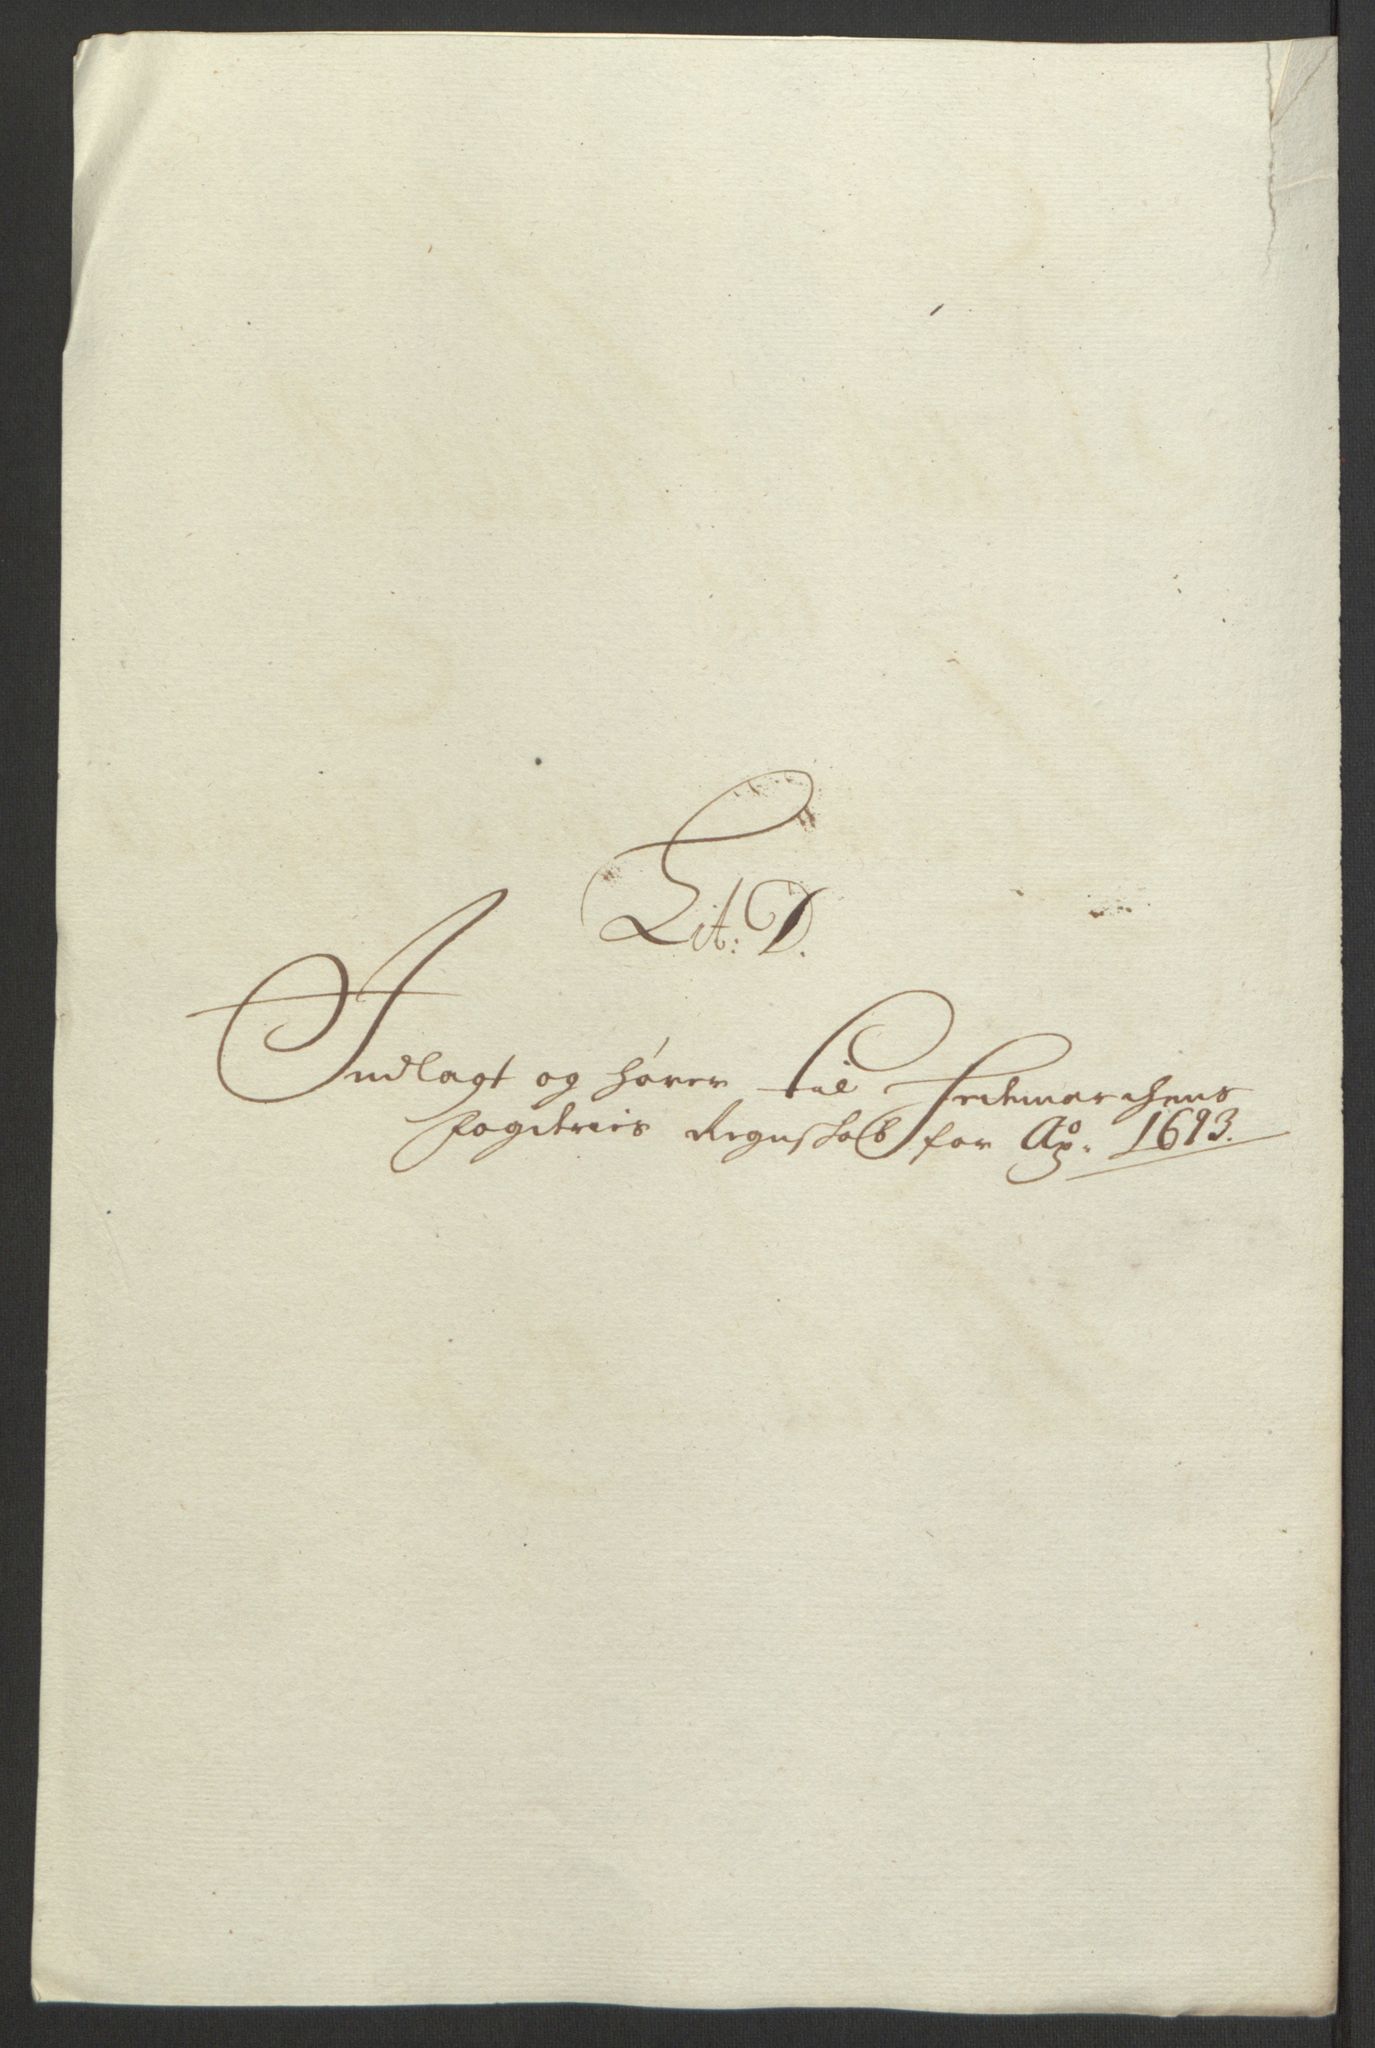 Lit: D.
Indlagt og hører til Hedemarchens
fogderies Regnskab for Ao. 1693.